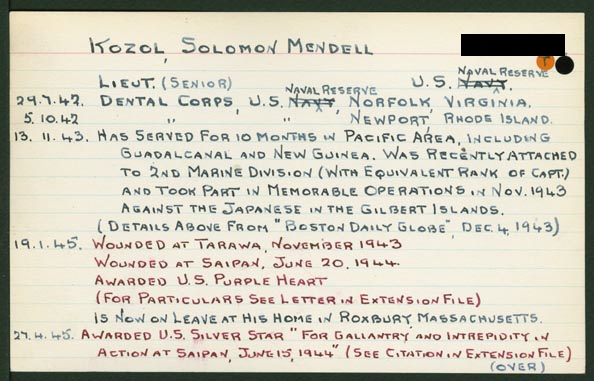 KOZOL, SOLOMON MENDELL
LIEUT. (SENIOR) U.S. NAVY. NAVAL RESERVE
29.7.42. DENTAL CORPS, U.S. NAVY NAVAL RESERVE, NORFOLK, VIRGINIA.
5.10.42 " " NEWPORT, RHODE ISLAND.
13.11.43. HAS SERVED FOR 10 MONTHS IN PACIFIC AREA, INCLUDING
GUADALCANAL AND NEW GUINEA. WAS RECENTLY ATTACHED
TO 2ND MARINE DIVISION (WITH EQUIVALENT RANK OF CAPT.)
AND TOOK PART IN MEMORABLE OPERATIONS IN NOV. 1943
AGAINST THE JAPANESE IN THE GILBERT ISLANDS.
(DETAILS ABOVE FROM "BOSTON DAILY GLOBE", DEC. 4, 1943)
19.1.45. WOUNDED AT TARAWA, NOVEMBER 1943
WOUNDED AT SAIPAN, JUNE 20, 1944.
AWARDED U.S. PURPLE HEART
(FOR PARTICULARS SEE LETTER IN EXTENSION FILE)
IS NOW ON LEAVE AT HIS HOME IN ROXBURY, MASSACHUSETTS.
27.4.45. AWARDED U.S. SILVER STAR "FOR GALLANTRY AND INTREPIDITY IN
ACTION AT SAIPAN, JUNE 15, 1944" (SEE CITATION IN EXTENSION FILE)
(OVER)